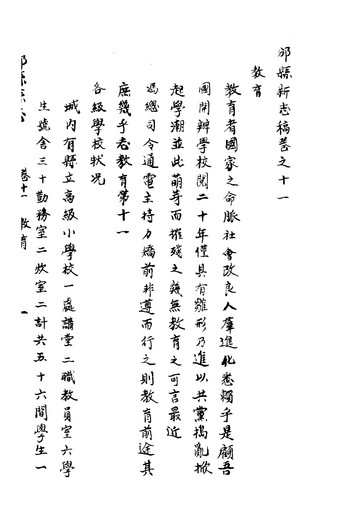 邠縣新志稿卷之十一
教育
教育者國家之命脈社會改良人羣進化悉賴乎是顧吾
國開辦學校閱二十年僅具有雛形乃進以共黨搗亂掀
起學潮並此萌芽而摧殘之幾無教育之可言最近
馮總司令通電主持力矯前非遵而行之則教育前途其
庶幾乎志教育第十一
各級學校狀況
城內有縣立高級小學校一處講堂二職教員室六學
生號舍三十勤務室二炊室二計共五十六間學生一
卷十一 教育 一